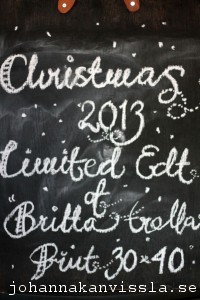 Christmas
2013
Limited Edt
of
"Britta trolla"
Print 30x40
johannakanvissla.se